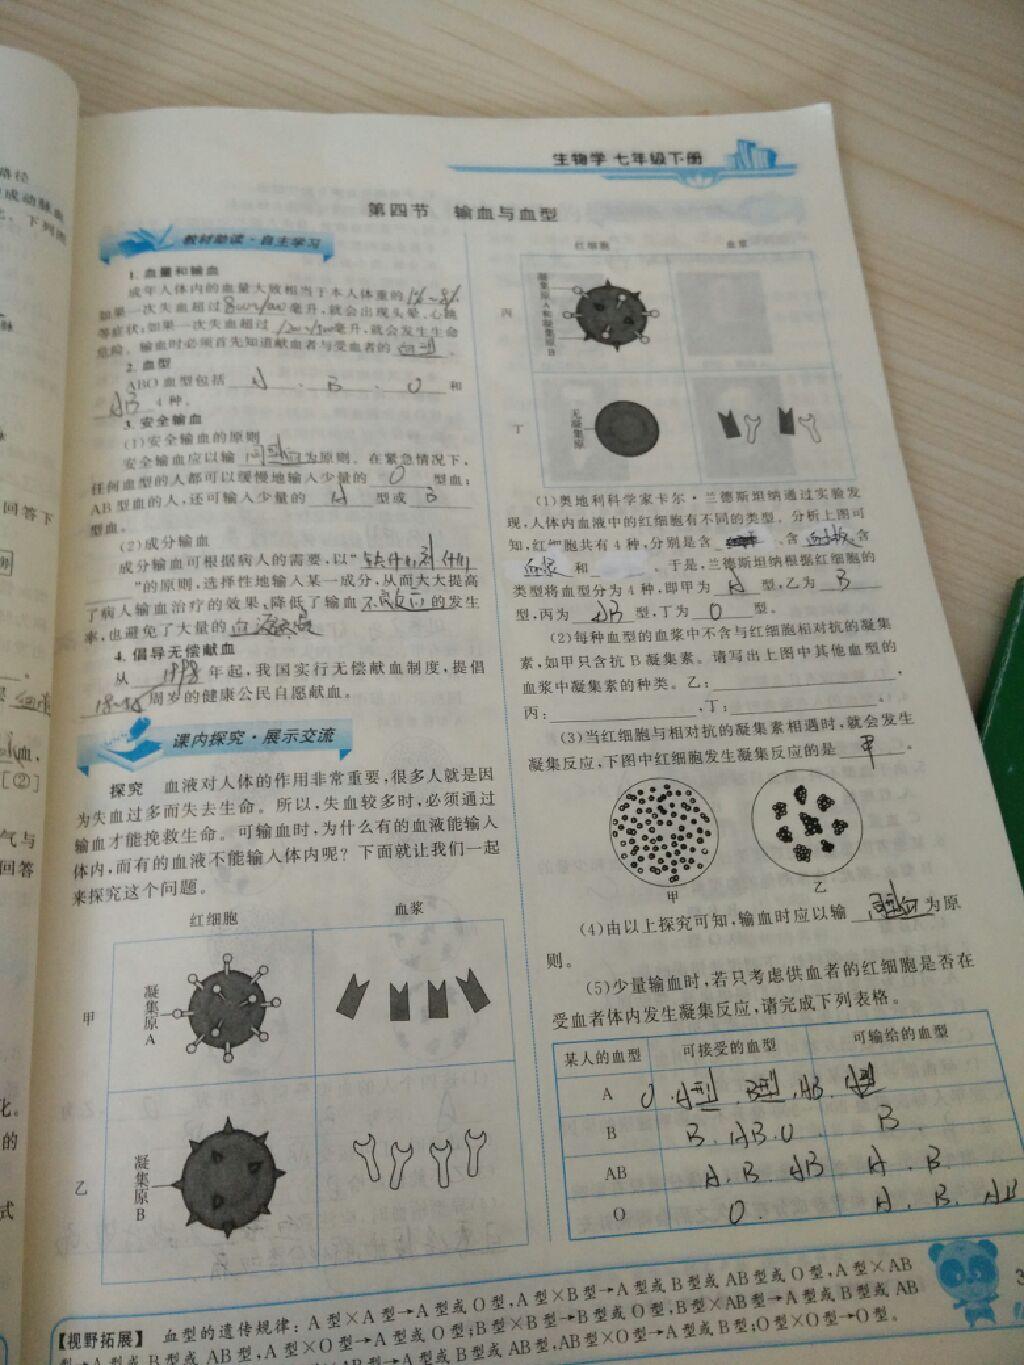 生物学 七年级下册
第四节 输血与血型
教材助读·自主学习
1. 血量和输血
成年人体内的血量大致相当于本人体重的 7%~8%
如果一次失血超过 800~1200 毫升,就会出现头晕、心跳
等症状;如果一次失血超过 毫升,就会发生生命
危险。输血时必须首先知道献血者与受血者的 血型 。
2. 血型
ABO血型包括 A 、 B 、 O 和
AB 4种。
3. 安全输血
(1)安全输血的原则
安全输血应以输 同型血 为原则。在紧急情况下,
任何血型的人都可以缓慢地输入少量的 O 型血;
AB型血的人,还可输入少量的 A 型或 B
型血。
(2)成分输血
成分输血可根据病人的需要,以“ 缺什么补什么
”的原则,选择性地输入某一成分,从而大大提高
了病人输血治疗的效果,降低了输血 不良反应 的发生
率,也避免了大量的 血液浪费
4. 倡导无偿献血
从 1998 年起,我国实行无偿献血制度,提倡
18~55 周岁的健康公民自愿献血。
课内探究·展示交流
探究 血液对人体的作用非常重要,很多人就是因
为失血过多而失去生命。所以,失血较多时,必须通过
输血才能挽救生命。可输血时,为什么有的血液能输入
体内,而有的血液不能输入体内呢?下面就让我们一起
来探究这个问题。
红细胞 血浆
甲 凝集原A
乙 凝集原B
红细胞 血浆
丙 凝集原A和凝集原B
丁 无凝集原
(1)奥地利科学家卡尔·兰德斯坦纳通过实验发
现,人体内血液中的红细胞有不同的类型。分析上图可
知,红细胞共有4种,分别是含 、含 血小板 含
血浆 和 。于是,兰德斯坦纳根据红细胞的
类型将血型分为4种,即甲为 A 型,乙为 B
型,丙为 AB 型,丁为 O 型。
(2)每种血型的血浆中不含与红细胞相对抗的凝集
素,如甲只含抗B凝集素。请写出上图中其他血型的
血浆中凝集素的种类。乙: ,
丙: ,丁: 。
(3)当红细胞与相对抗的凝集素相遇时,就会发生
凝集反应,下图中红细胞发生凝集反应的是 甲 。
甲 乙
(4)由以上探究可知,输血时应以输 同型血 为原
则。
(5)少量输血时,若只考虑供血者的红细胞是否在
受血者体内发生凝集反应,请完成下列表格。
某人的血型 可接受的血型 可输给的血型
A O. A型. B型. AB.
B B. AB. O B.
AB A. B. AB A. B.
O O. A. B. AB
【视野拓展】 血型的遗传规律:A型×A型→A型或O型,A型×B型→A型或B型或AB型或O型,A型×AB
型→A型或B型或AB型,A型×O型→A型或O型;B型×B型→B型或O型,B型×AB型→A型或B型或AB
型→A型或B型或AB型,AB型×O型→A型或B型;O型×O型→O型。
回答下
[②]
气与
回答